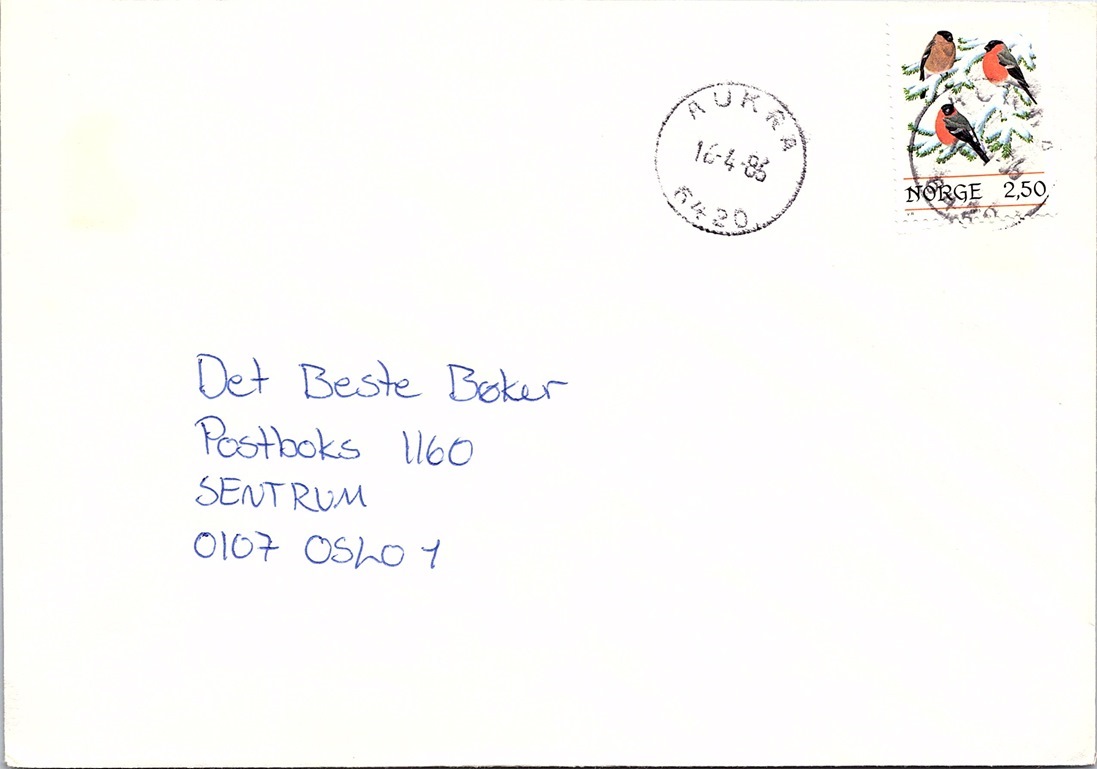 AUKRA
16-4-86
6420
NORGE 2,50
Det Beste Bøker
Postboks 1160
SENTRUM
0107 OSLO 1